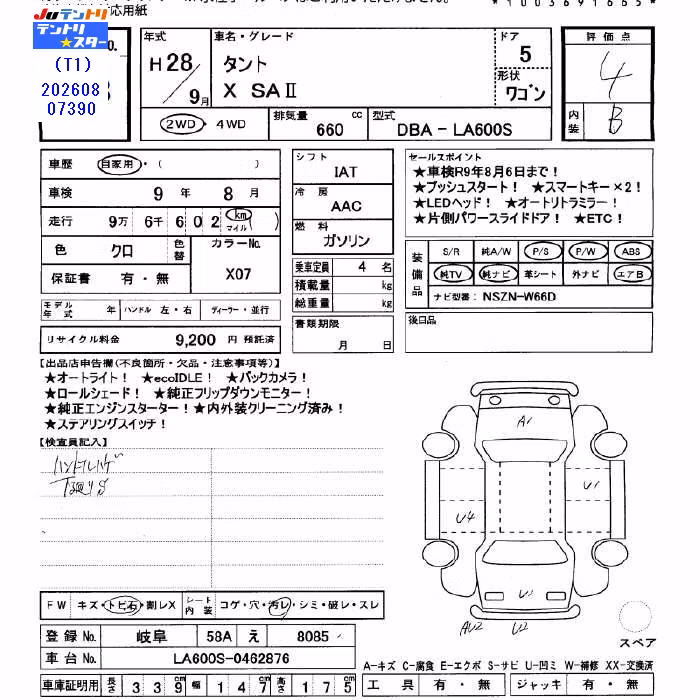 応用紙
*1003691665*
JUテントリ
テントリ
★スター
(T1)
202608
07390
No.
年式 車名・グレード ドア 評価点
H28/9月 タント 5 4
X SAⅡ 形状 ワゴン
②WD・4WD 排気量 660 cc 型式 DBA-LA600S 内装 B
車歴 自家用・( )
車検 9年 8月
走行 9万 6千 6 0 2 km マイル ( )
色 クロ 色替 カラーNo. X07
保証書 有・無
シフト IAT
冷房 AAC
燃料 ガソリン
乗車定員 4 名
積載量 kg
総重量 kg
書類期限 月 日
セールスポイント
★車検R9年8月6日まで！
★プッシュスタート！ ★スマートキー×2！
★LEDヘッド！ ★オートリトラミラー！
★片側パワースライドドア！ ★ETC！
装備品 S/R 純A/W P/S P/W ABS
純TV 純ナビ 革シート 外ナビ エアB
ナビ型番： NSZN-W66D
モデル年式 年 ハンドル 左・右 ディーラー・並行
後日品
リサイクル料金 9,200 円 預託済
【出品店申告欄(不良箇所・欠品・注意事項等)】
★オートライト！ ★ecoIDLE！ ★バックカメラ！
★ロールシェード！ ★純正フリップダウンモニター！
★純正エンジンスターター！★内外装クリーニング済み！
★ステアリングスイッチ！
【検査員記入】
ハンドルハゲ
下廻りS
A1
U1
U4
AU2 U2
FW キズ・トビ石・割レX シート内装 コゲ・穴・汚レ・シミ・破レ・スレ
登録No. 岐阜 58A え 8085
車台No. LA600S-0462876
スペア
A-キズ C-腐食 E-エクボ S-サビ U-凹ミ W-補修 XX-交換済
車庫証明用 長さ 3 3 9 幅 1 4 7 高さ 1 7 5
工具 有・無 ジャッキ 有・無